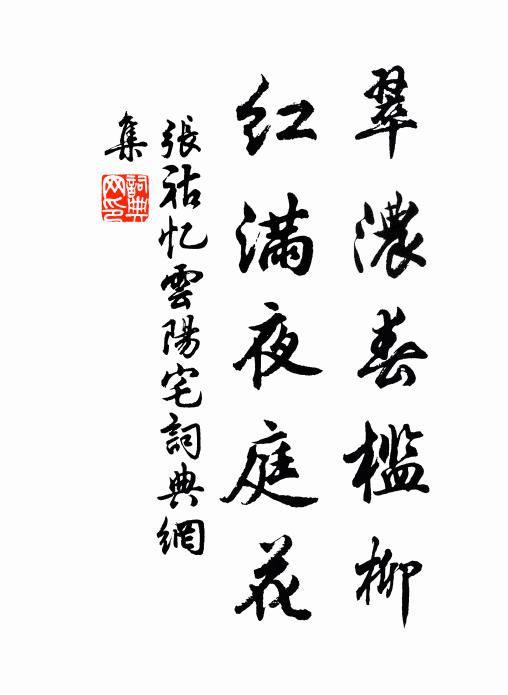 翠濃春檻柳
紅滿夜庭花
張祜忆雲陽宅詞典網
集
詞典网印